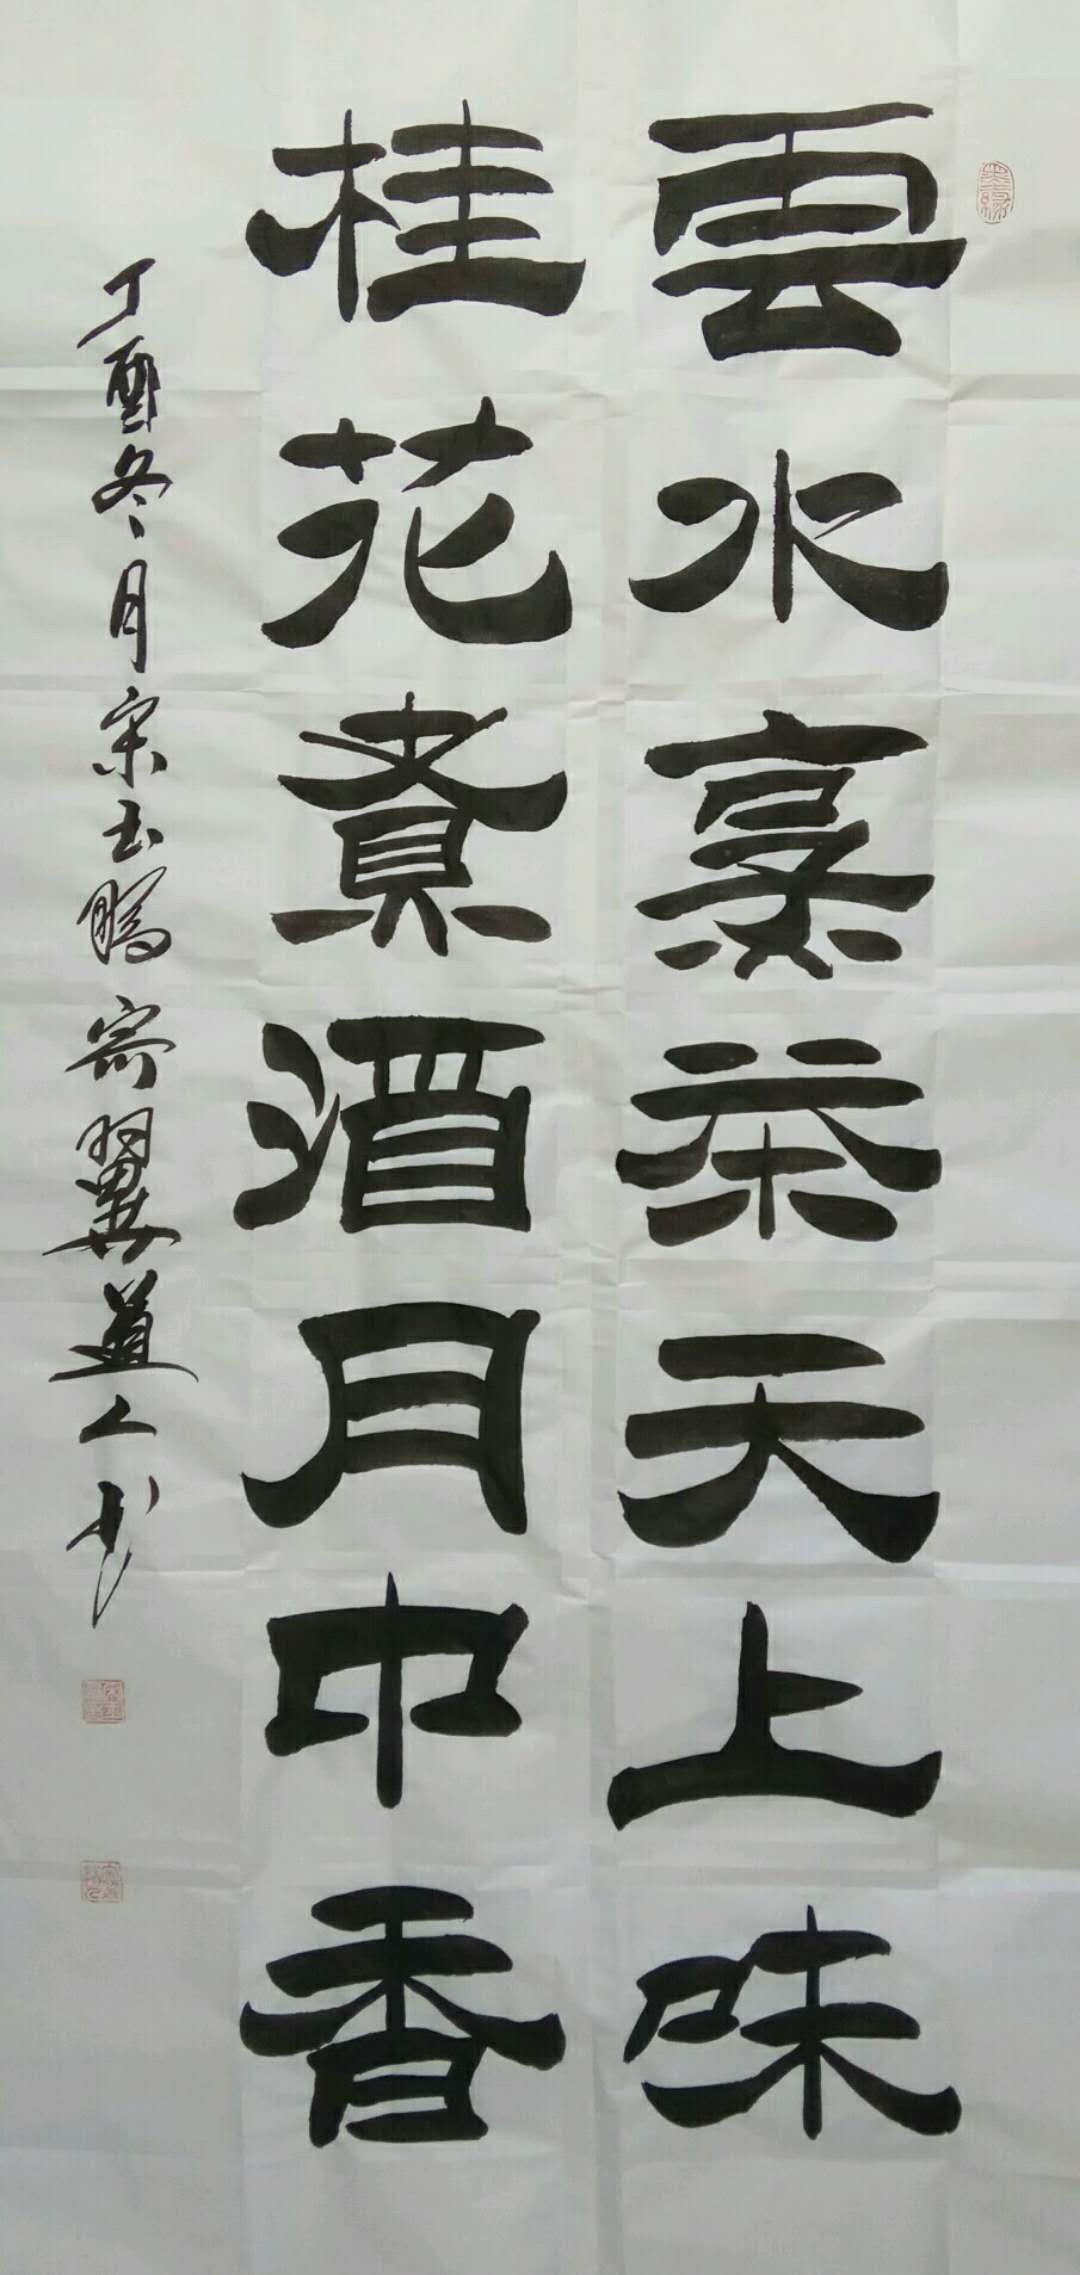 雲水烹茶天上味
桂花煮酒月中香
丁酉冬月宋玉鵬寄翼道人书